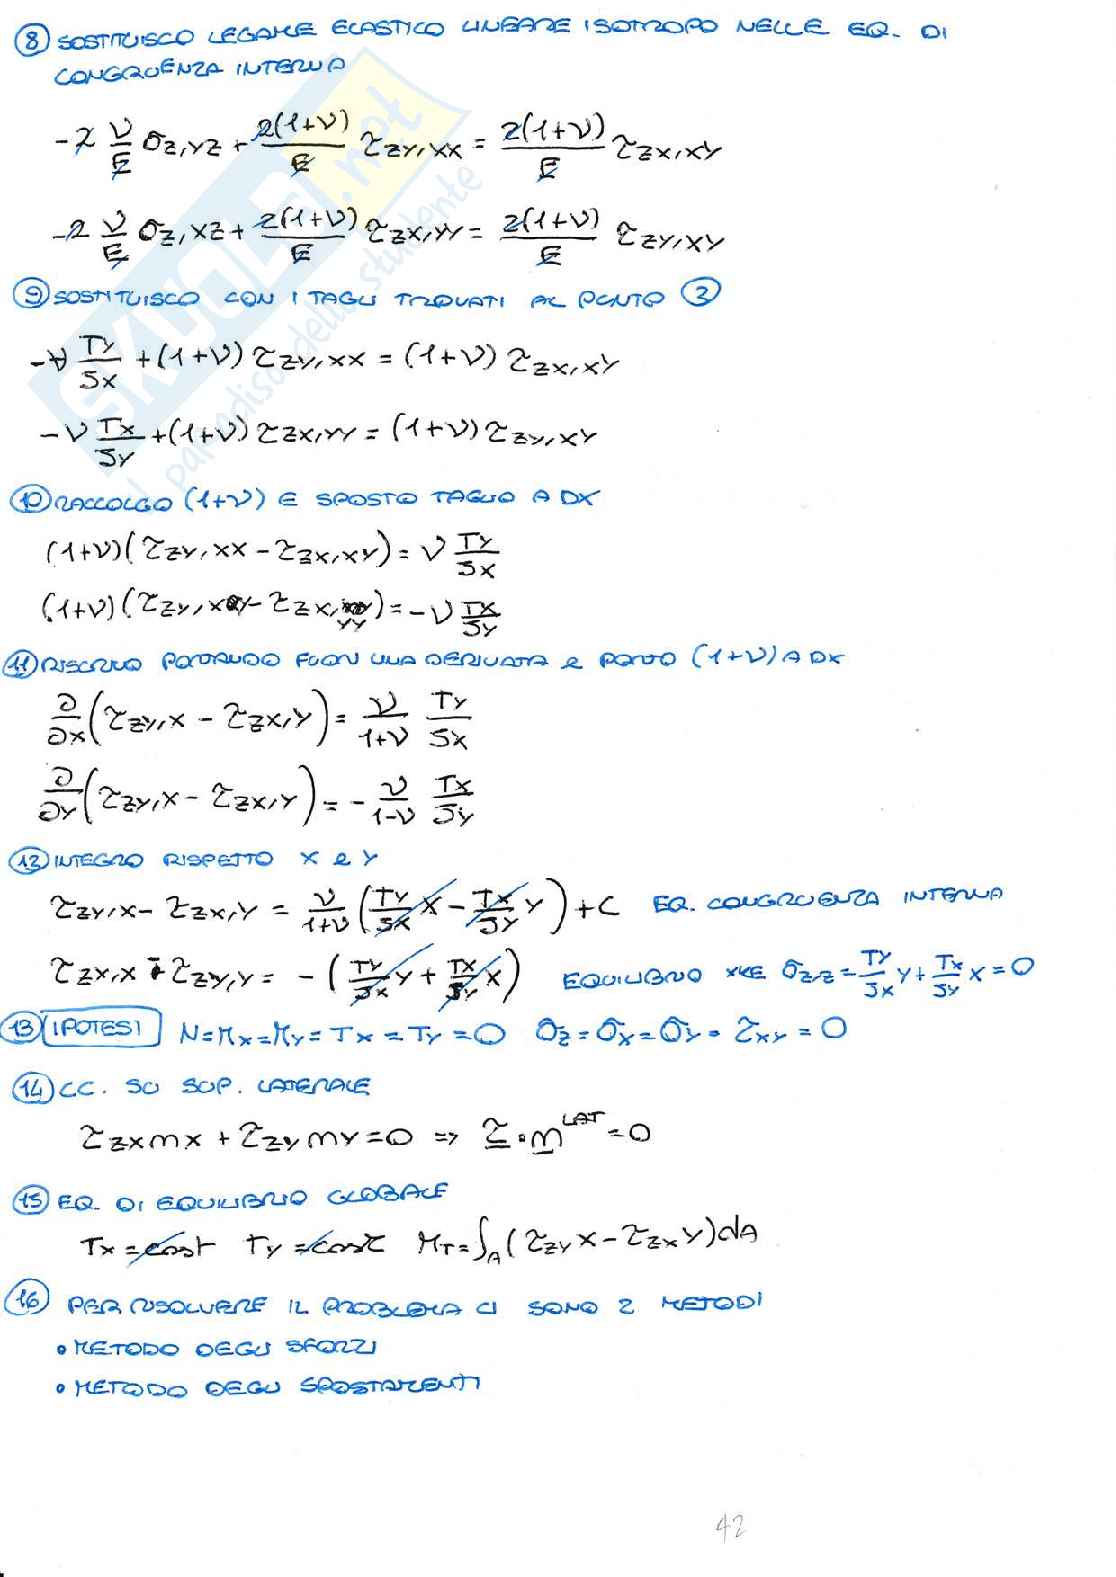 8 SOSTITUISCO LEGAME ELASTICO LINEARE ISOTROPO NELLE EQ. DI
CONGRUENZA INTERNA
-2 ν/E σz,yz + 2(1+ν)/E τzy,xx = 2(1+ν)/E τzx,xy
-2 ν/E σz,xz + 2(1+ν)/E τzx,yy = 2(1+ν)/E τzy,xy
9 SOSTITUISCO CON I TAGLI TROVATI AL PUNTO 2
-ν Ty/Jx + (1+ν) τzy,xx = (1+ν) τzx,xy
-ν Tx/Jy + (1+ν) τzx,yy = (1+ν) τzy,xy
10 RACCOLGO (1+ν) E SPOSTO TAGLIO A DX
(1+ν)(τzy,xx - τzx,xy) = ν Ty/Jx
(1+ν)(τzy,xy - τzx,yy) = -ν Tx/Jy
11 RISCRIVO PORTANDO FUORI UNA DERIVATA E PORTO (1+ν) A DX
∂/∂x (τzy,x - τzx,y) = ν/1+ν Ty/Jx
∂/∂y (τzy,x - τzx,y) = - ν/1-ν Tx/Jy
12 INTEGRO RISPETTO X E Y
τzy,x - τzx,y = ν/1+ν (Ty/Jx x - Tx/Jy y) + C EQ. CONGRUENZA INTERNA
τzx,x + τzy,y = - (Ty/Jx y + Tx/Jy x) EQUILIBRIO XKE σz,z = Ty/Jx y + Tx/Jy x = 0
13 IPOTESI N=Mx=My=Tx=Ty=0 σz=σx=σy=τxy=0
14 CC. SU SUP. LATERALE
τzx mx + τzy my = 0 => τ · m^LAT = 0
15 EQ. DI EQUILIBRIO GLOBALE
Tx = cost Ty = cost MT = ∫A (τzy x - τzx y) dA
16 PER RISOLVERE IL PROBLEMA CI SONO 2 METODI
• METODO DEGLI SFORZI
• METODO DEGLI SPOSTAMENTI
42
SKUOLA.net
il paradiso dello studente